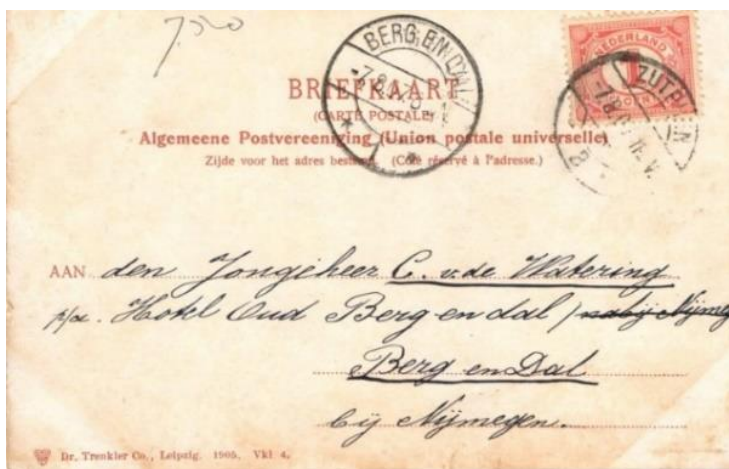 7,520
BERG EN DAL
ZUTPHEN
NEDERLAND
1
BRIEFKAART
(CARTE POSTALE)
Algemeene Postvereeniging (Union postale universelle)
Zijde voor het adres bestemd. (Côté réservé à l'adresse.)
AAN den Jongeheer C. v. de Watering
p/a. Hotel Oud Berg en dal / nabij Nijmeg
Berg en Dal
bij Nijmegen.
Dr. Trenkler Co., Leipzig. 1905. Vkl 4.